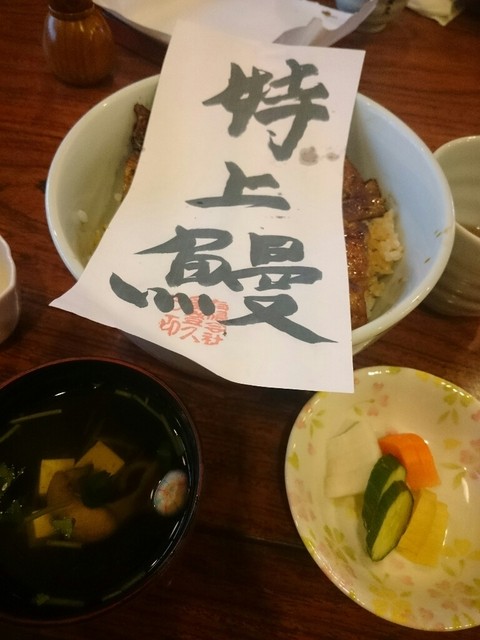 特
上
鰻